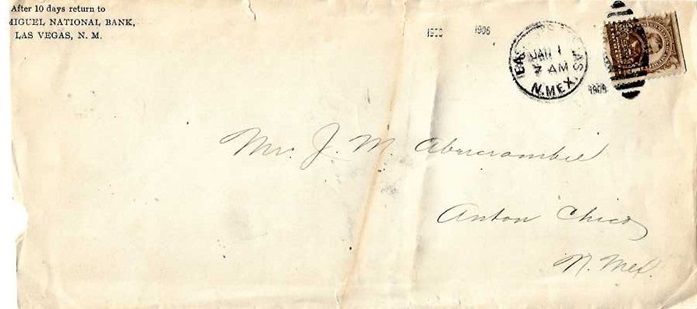 After 10 days return to
MIGUEL NATIONAL BANK,
LAS VEGAS, N. M.
1906
JAN 1
7 AM
N. MEX.
Mr. J. M. Abercrombie
Anton Chico
N. Mex.